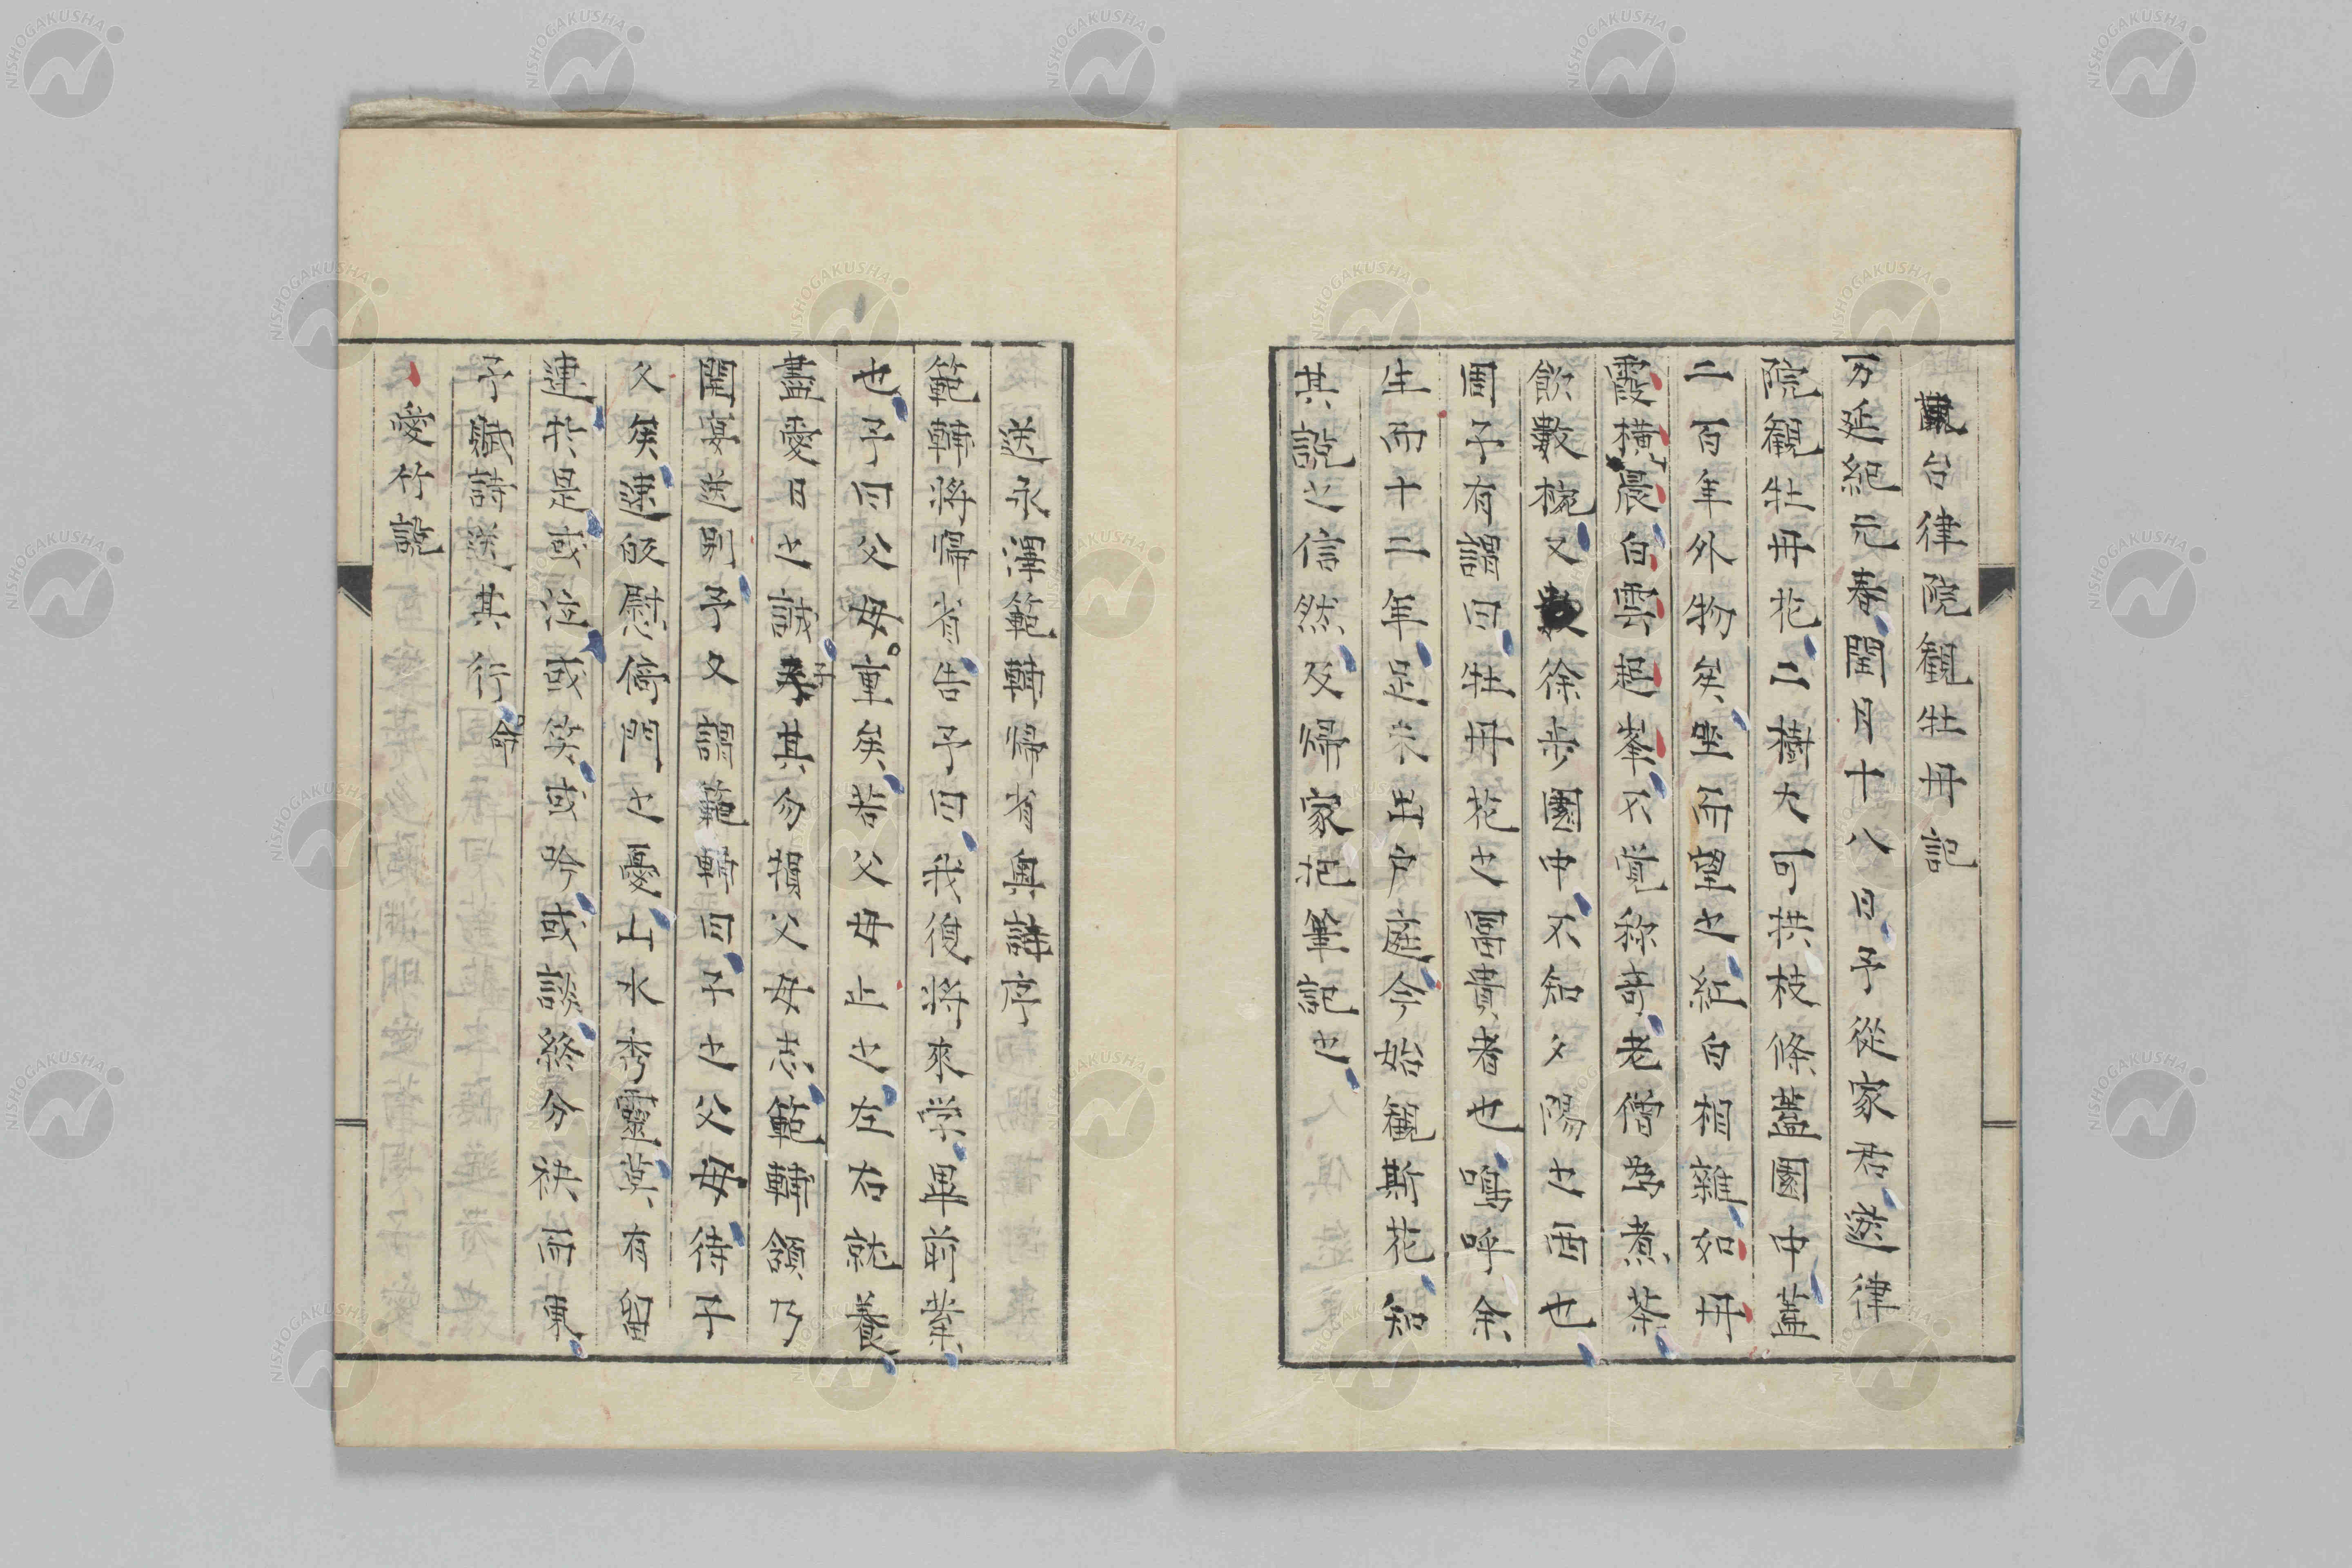 觀台律院觀牡丹記
万延紀元春閏月十八日予從家君遊律
院觀牡丹花二樹大可拱枝條蓋園中蓋
二百年外物矣坐而望之紅白相雜如丹
霞橫晨白雲起峯不覺称奇老僧為煮茶
飲數椀又徐步園中不知夕陽之西也
周子有謂曰牡丹花之冨貴者也嗚呼余
生而十二年足未出戶庭今始觀斯花知
其說之信然及帰家把筆記之
送永澤範韓帰省奥詩序
範韓将帰省告予曰我復将來学畢前業
也予曰父母重矣若父母止之左右就養
盡愛日之誠其勿損父母志範韓頷乃
開宴送別予又謂範韓曰子之父母待子
久矣速皈慰倚門之憂山水秀靈莫有留
連於是或泣或笑或吟或談終分袂而東
予賦詩送其行
愛竹說